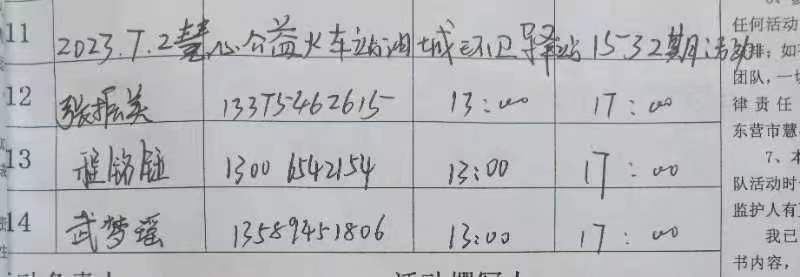 11 2023.7.2慧心公益火车站油城环卫驿站1532期活动
12 张振美 13375462615 13:00 17:00
13 程铭钰 13006542154 13:00 17:00
14 武梦瑶 13589451806 13:00 17:00
任何活动
排；如
团队，一切
律责任
东营市慧
7、本
队活动时
监护人有
我已
书内容，